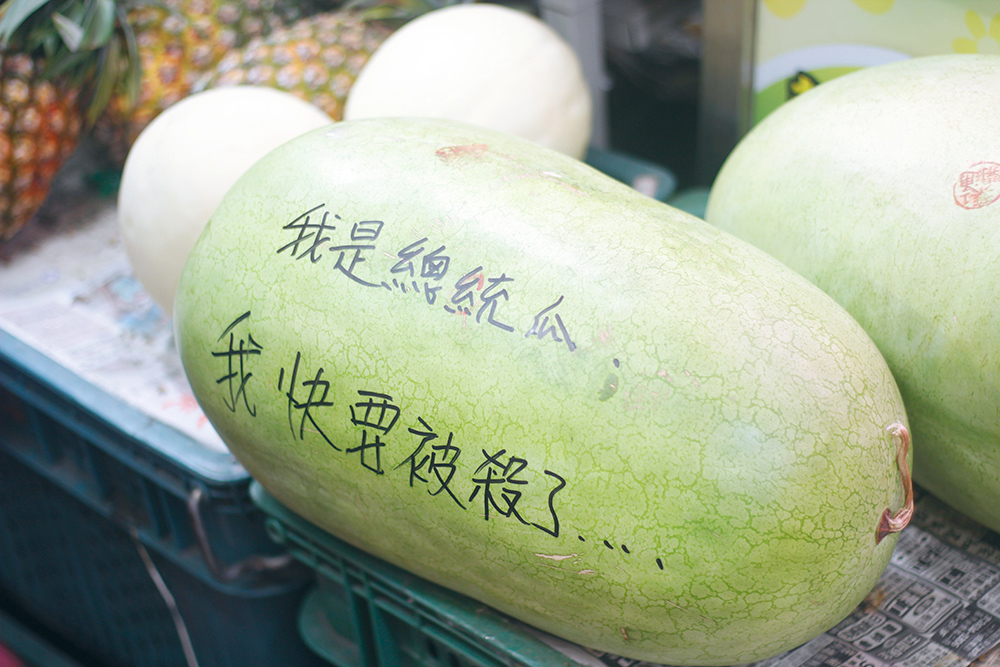 我是總統瓜：
我快要被殺了....